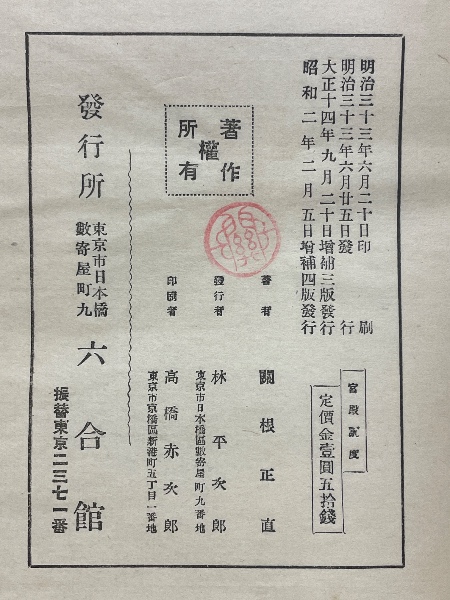 明治三十三年六月二十日印刷
明治三十三年六月廿五日發行
大正十四年九月二十日增補三版發行
昭和二年二月五日增補四版發行
宮殿調度
定價金壹圓五拾錢
著作權所有
著者 關根正直
發行者 林平次郎
東京市日本橋區數寄屋町九番地
印刷者 高橋赤次郎
東京市京橋區新港町五丁目一番地
發行所 東京市日本橋數寄屋町九 六合館
振替東京二三七一番